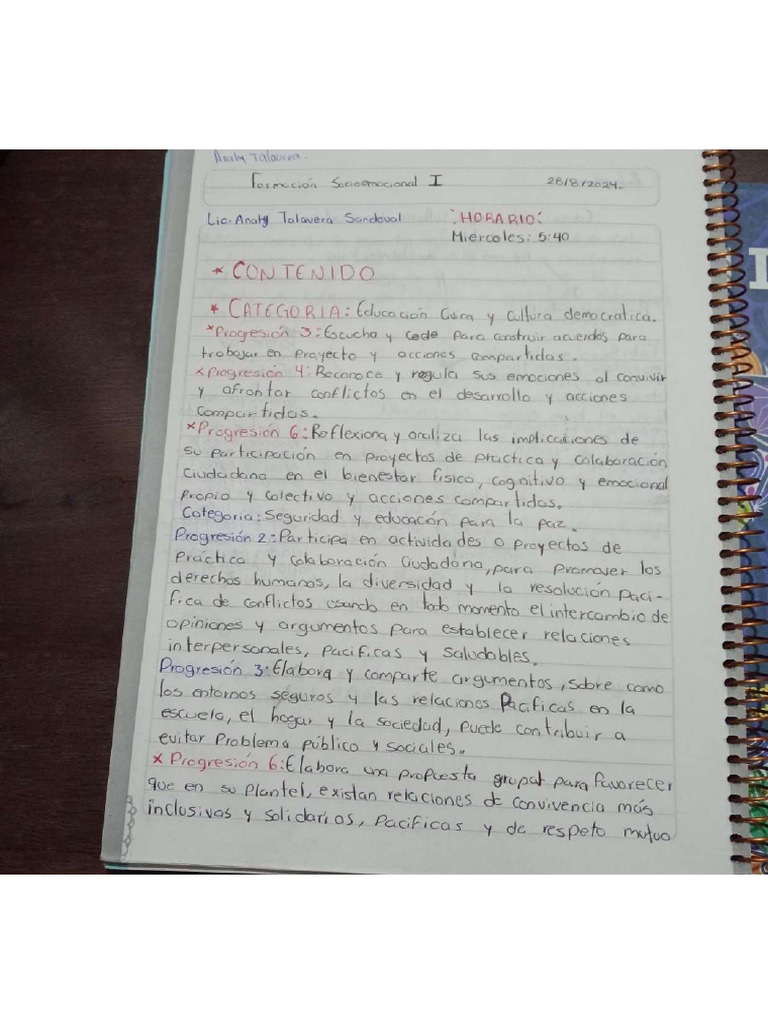 Analy Talavera.
Formación Socioemocional I 28/8/2024.
Lic. Analy Talavera Sandoval ¡HORARIO!
Miércoles: 5:40
* CONTENIDO
* CATEGORIA: Educación Civca y cultura democratica.
*Progresión 3: Escucha y cede para construir acuerdos para
trabajar en proyecto y acciones compartidas.
x progresión 4: Reconoce y regula sus emociones al convivir
y afrontar conflictos en el desarrollo y acciones
compartidas.
*Progresión 6: Reflexiona y analiza las implicaciones de
su participación en proyectos de practica y colaboración
Ciudadana en el bienestar fisico, cognitivo y emocional
propio y colectivo y acciones compartidas.
Categoria: Seguridad y educación para la paz.
Progresión 2: Participa en actividades o proyectos de
Práctica y colaboración Ciudadana, para promover los
derechos humanos, la diversidad y la resolución paci-
fica de conflictos usando en todo momento el intercambio de
opiniones y argumentos para establecer relaciones
interpersonales, pacificas y saludables.
Progresión 3: Elabora y comparte argumentos, sobre como
los entornos seguros y las relaciones Pacificas en la
escuela, el hogar y la sociedad, puede contribuir a
evitar Problema público y sociales.
x Progresión 6: Elabora una propuesta grupal para favorecer
que en su plantel, existan relaciones de convivencia más
inclusivas y solidarias, Pacificas y de respeto mutuo